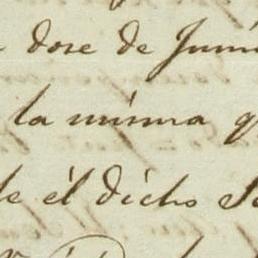 dose de Juni
la misma q
de él dicho S